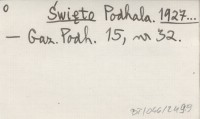 Święto Podhala. 1927...
— Gaz. Podh. 15, nr 32.